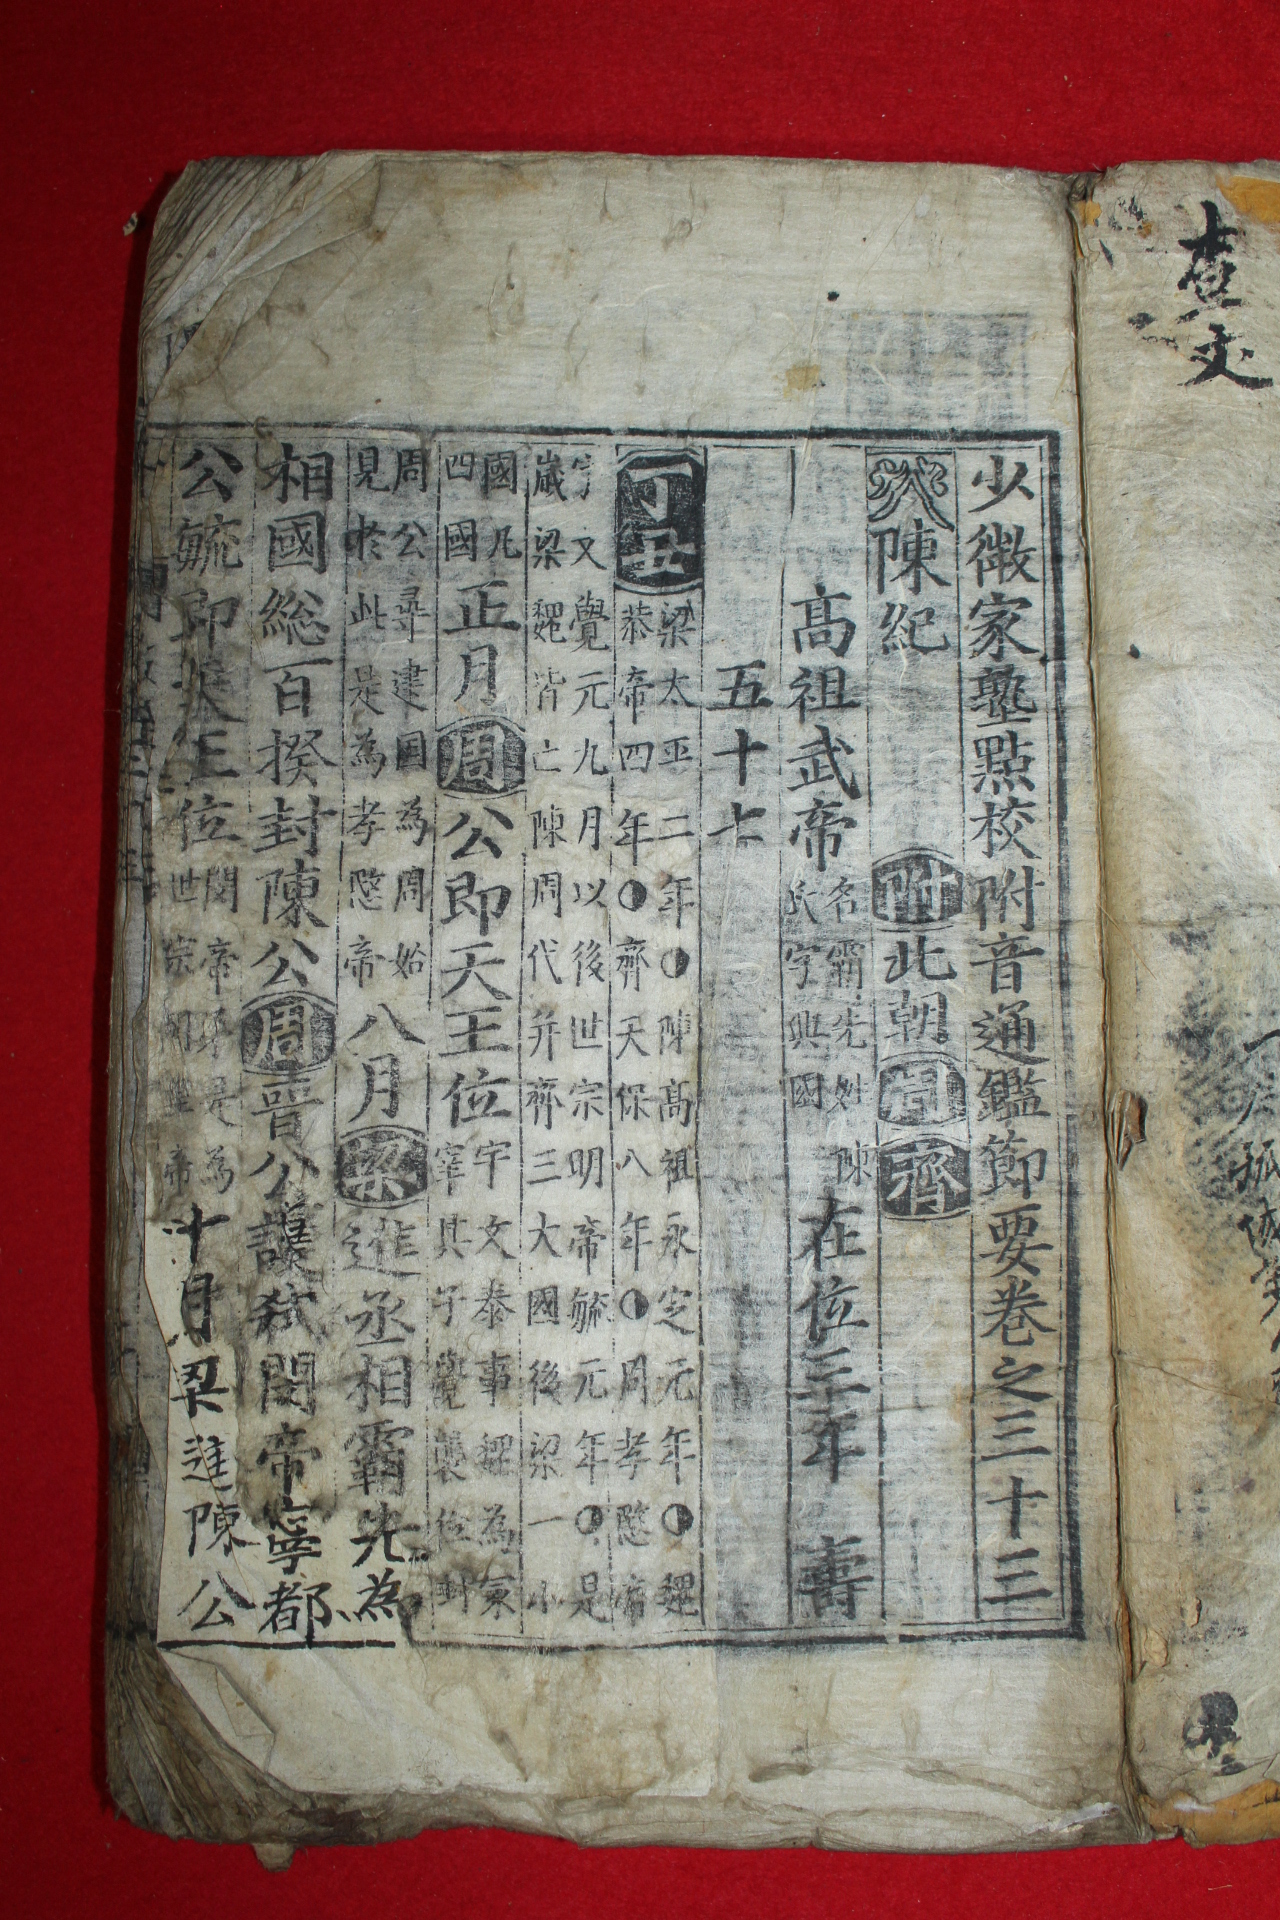 少微家塾點校附音通鑑節要卷之三十三
陳紀 附 北朝 周 齊
高祖武帝 名霸先姓陳氏字興國 在位三年 壽
五十七
丁丑 梁太平二年◐陳高祖永定元年◐魏恭帝四年◐齊天保八年◐周孝愍帝
宇文覺元九月以後世宗明帝毓元年◐是歲梁魏皆亡陳周代并齊三大國後梁一小
國凡四國 正月周公即天王位 宇文泰事魏為冢宰其子覺襲位封
周公尋建国為周始見於此是為孝愍帝 八月梁進丞相霸先為
相國総百揆封陳公周晉公護弑閔帝寧都
公毓即天王位 閔帝 是為世宗明 帝 十月梁進陳公
查文